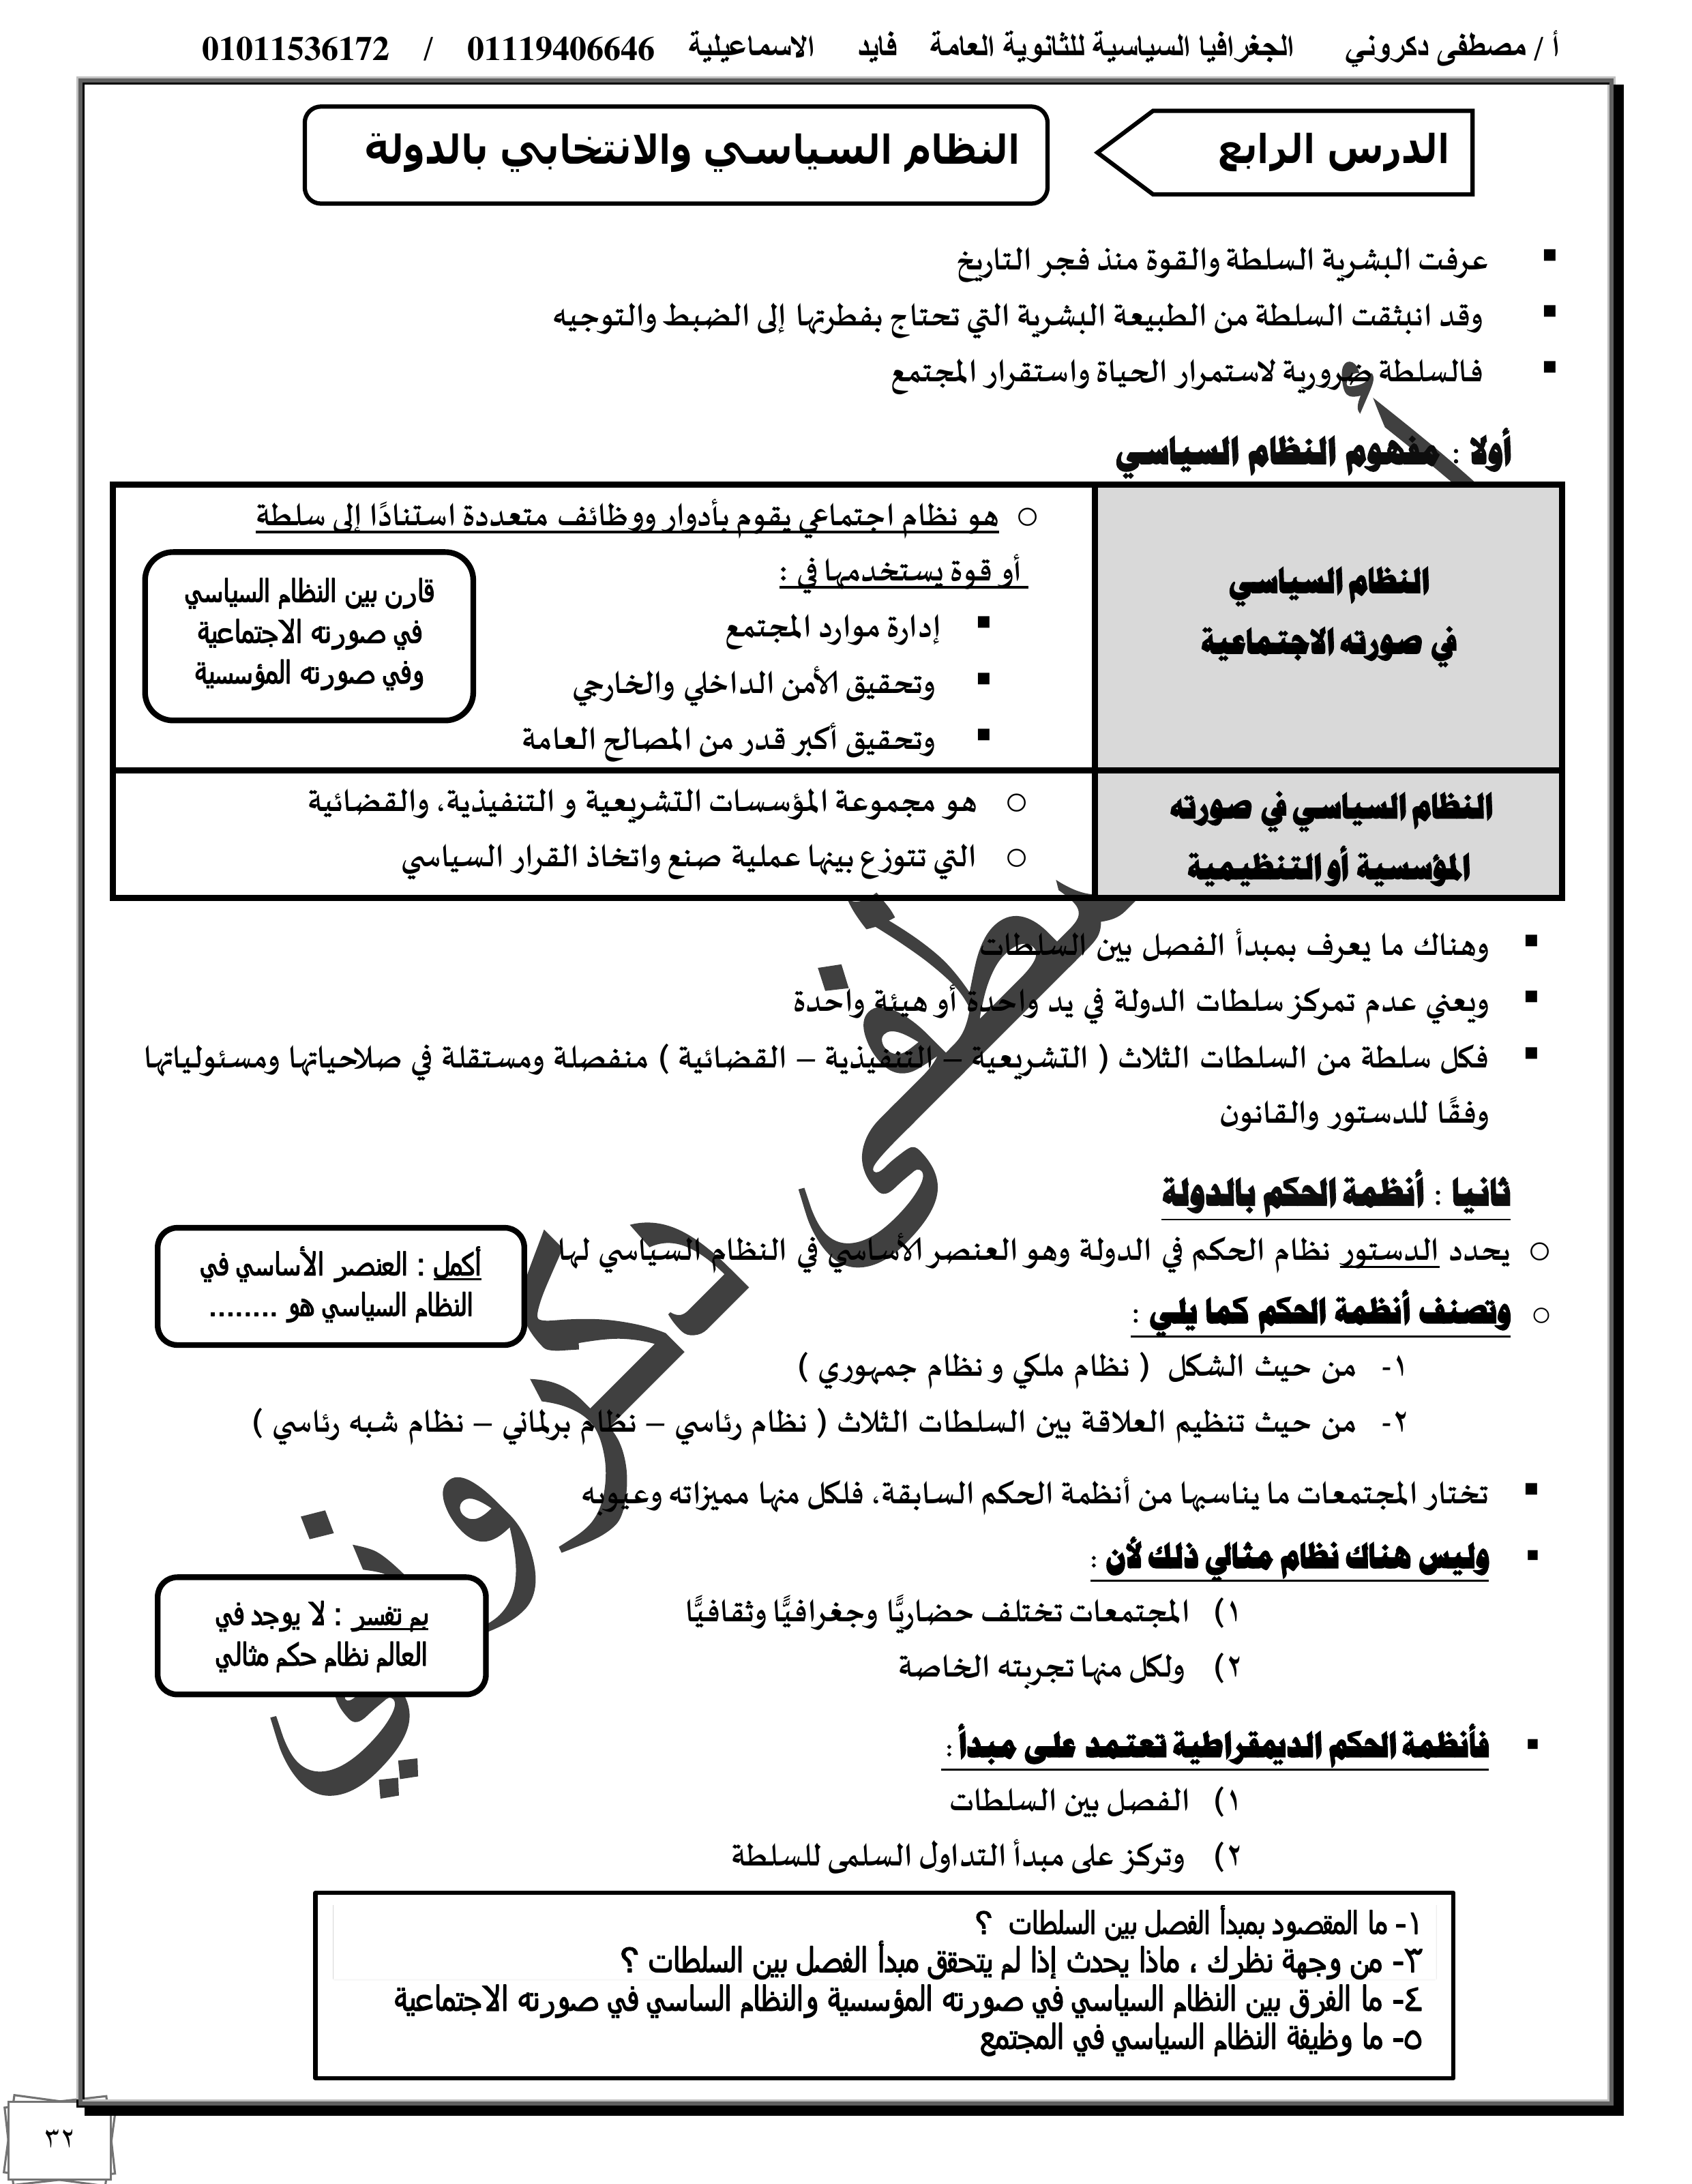 أ / مصطفى دكروني الجغرافيا السياسية للثانوية العامة فايد الاسماعيلية 01119406646 / 01011536172
الدرس الرابع
النظام السياسي والانتخابي بالدولة
▪ عرفت البشرية السلطة والقوة منذ فجر التاريخ
▪ وقد انبثقت السلطة من الطبيعة البشرية التي تحتاج بفطرتها إلى الضبط والتوجيه
▪ فالسلطة ضرورية لاستمرار الحياة واستقرار المجتمع
أولا : مفهوم النظام السياسي
النظام السياسي
في صورته الاجتماعية
○ هو نظام اجتماعي يقوم بأدوار ووظائف متعددة استنادًا إلى سلطة
أو قوة يستخدمها في :
▪ إدارة موارد المجتمع
▪ وتحقيق الأمن الداخلي والخارجي
▪ وتحقيق أكبر قدر من المصالح العامة
قارن بين النظام السياسي
في صورته الاجتماعية
وفي صورته المؤسسية
النظام السياسي في صورته
المؤسسية أو التنظيمية
○ هو مجموعة المؤسسات التشريعية و التنفيذية، والقضائية
○ التي تتوزع بينها عملية صنع واتخاذ القرار السياسي
▪ وهناك ما يعرف بمبدأ الفصل بين السلطات
▪ ويعني عدم تمركز سلطات الدولة في يد واحدة أو هيئة واحدة
▪ فكل سلطة من السلطات الثلاث ( التشريعية – التنفيذية – القضائية ) منفصلة ومستقلة في صلاحياتها ومسئولياتها
وفقًا للدستور والقانون
ثانيا : أنظمة الحكم بالدولة
○ يحدد الدستور نظام الحكم في الدولة وهو العنصر الأساسي في النظام السياسي لها
أكمل : العنصر الأساسي في
النظام السياسي هو ........
○ وتصنف أنظمة الحكم كما يلي :
١- من حيث الشكل ( نظام ملكي و نظام جمهوري )
٢- من حيث تنظيم العلاقة بين السلطات الثلاث ( نظام رئاسي – نظام برلماني – نظام شبه رئاسي )
▪ تختار المجتمعات ما يناسبها من أنظمة الحكم السابقة، فلكل منها مميزاته وعيوبه
▪ وليس هناك نظام مثالي ذلك لأن :
١) المجتمعات تختلف حضاريًّا وجغرافيًّا وثقافيًّا
٢) ولكل منها تجربته الخاصة
بم تفسر : لا يوجد في
العالم نظام حكم مثالي
▪ فأنظمة الحكم الديمقراطية تعتمد على مبدأ :
١) الفصل بين السلطات
٢) وتركز على مبدأ التداول السلمى للسلطة
١- ما المقصود بمبدأ الفصل بين السلطات ؟
٣- من وجهة نظرك ، ماذا يحدث إذا لم يتحقق مبدأ الفصل بين السلطات ؟
٤- ما الفرق بين النظام السياسي في صورته المؤسسية والنظام الساسي في صورته الاجتماعية
٥- ما وظيفة النظام السياسي في المجتمع
٣٢